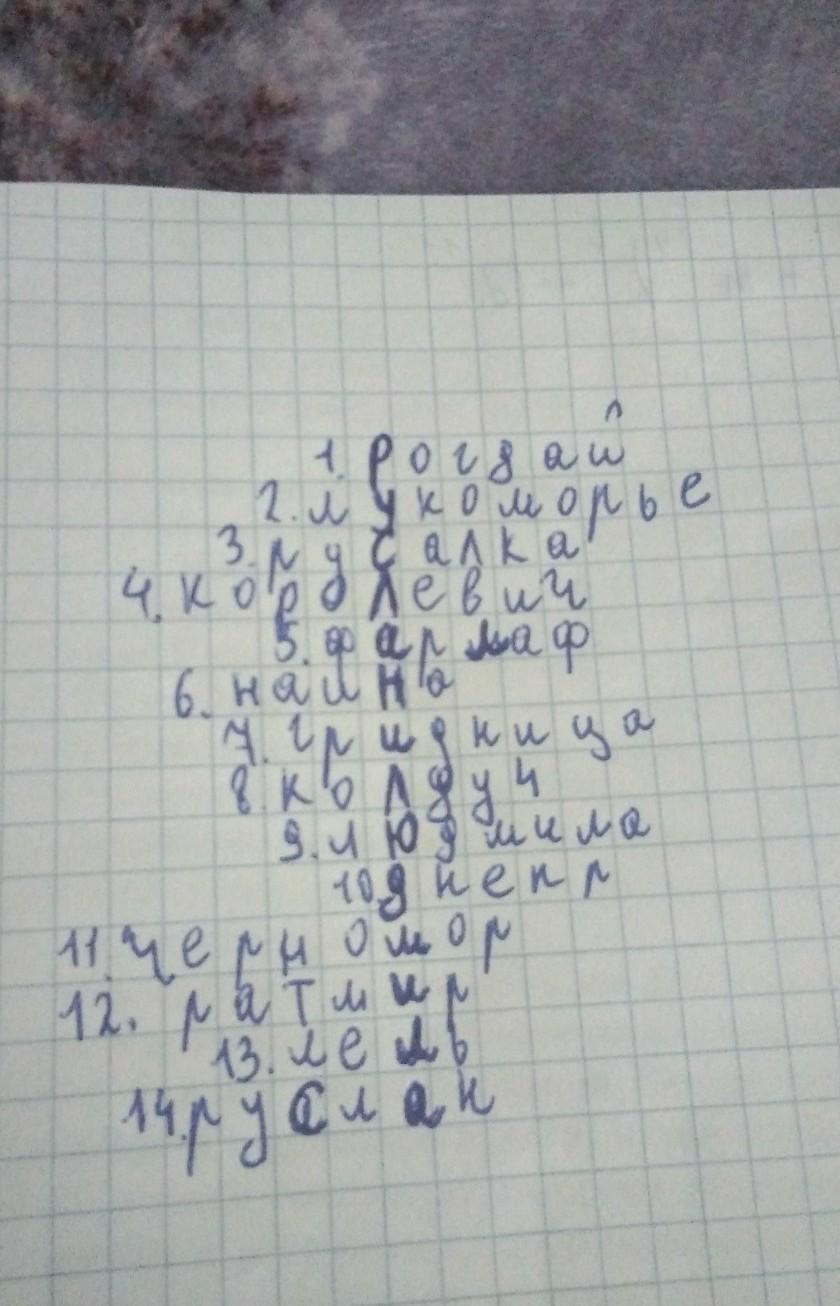 1. рогдай
2. лукоморье
3. русалка
4. королевич
5. фармаф
6. наина
7. гридница
8 колдун
9. людмила
10 днепр
11. черномор
12. ратмир
13. лель
14. руслан